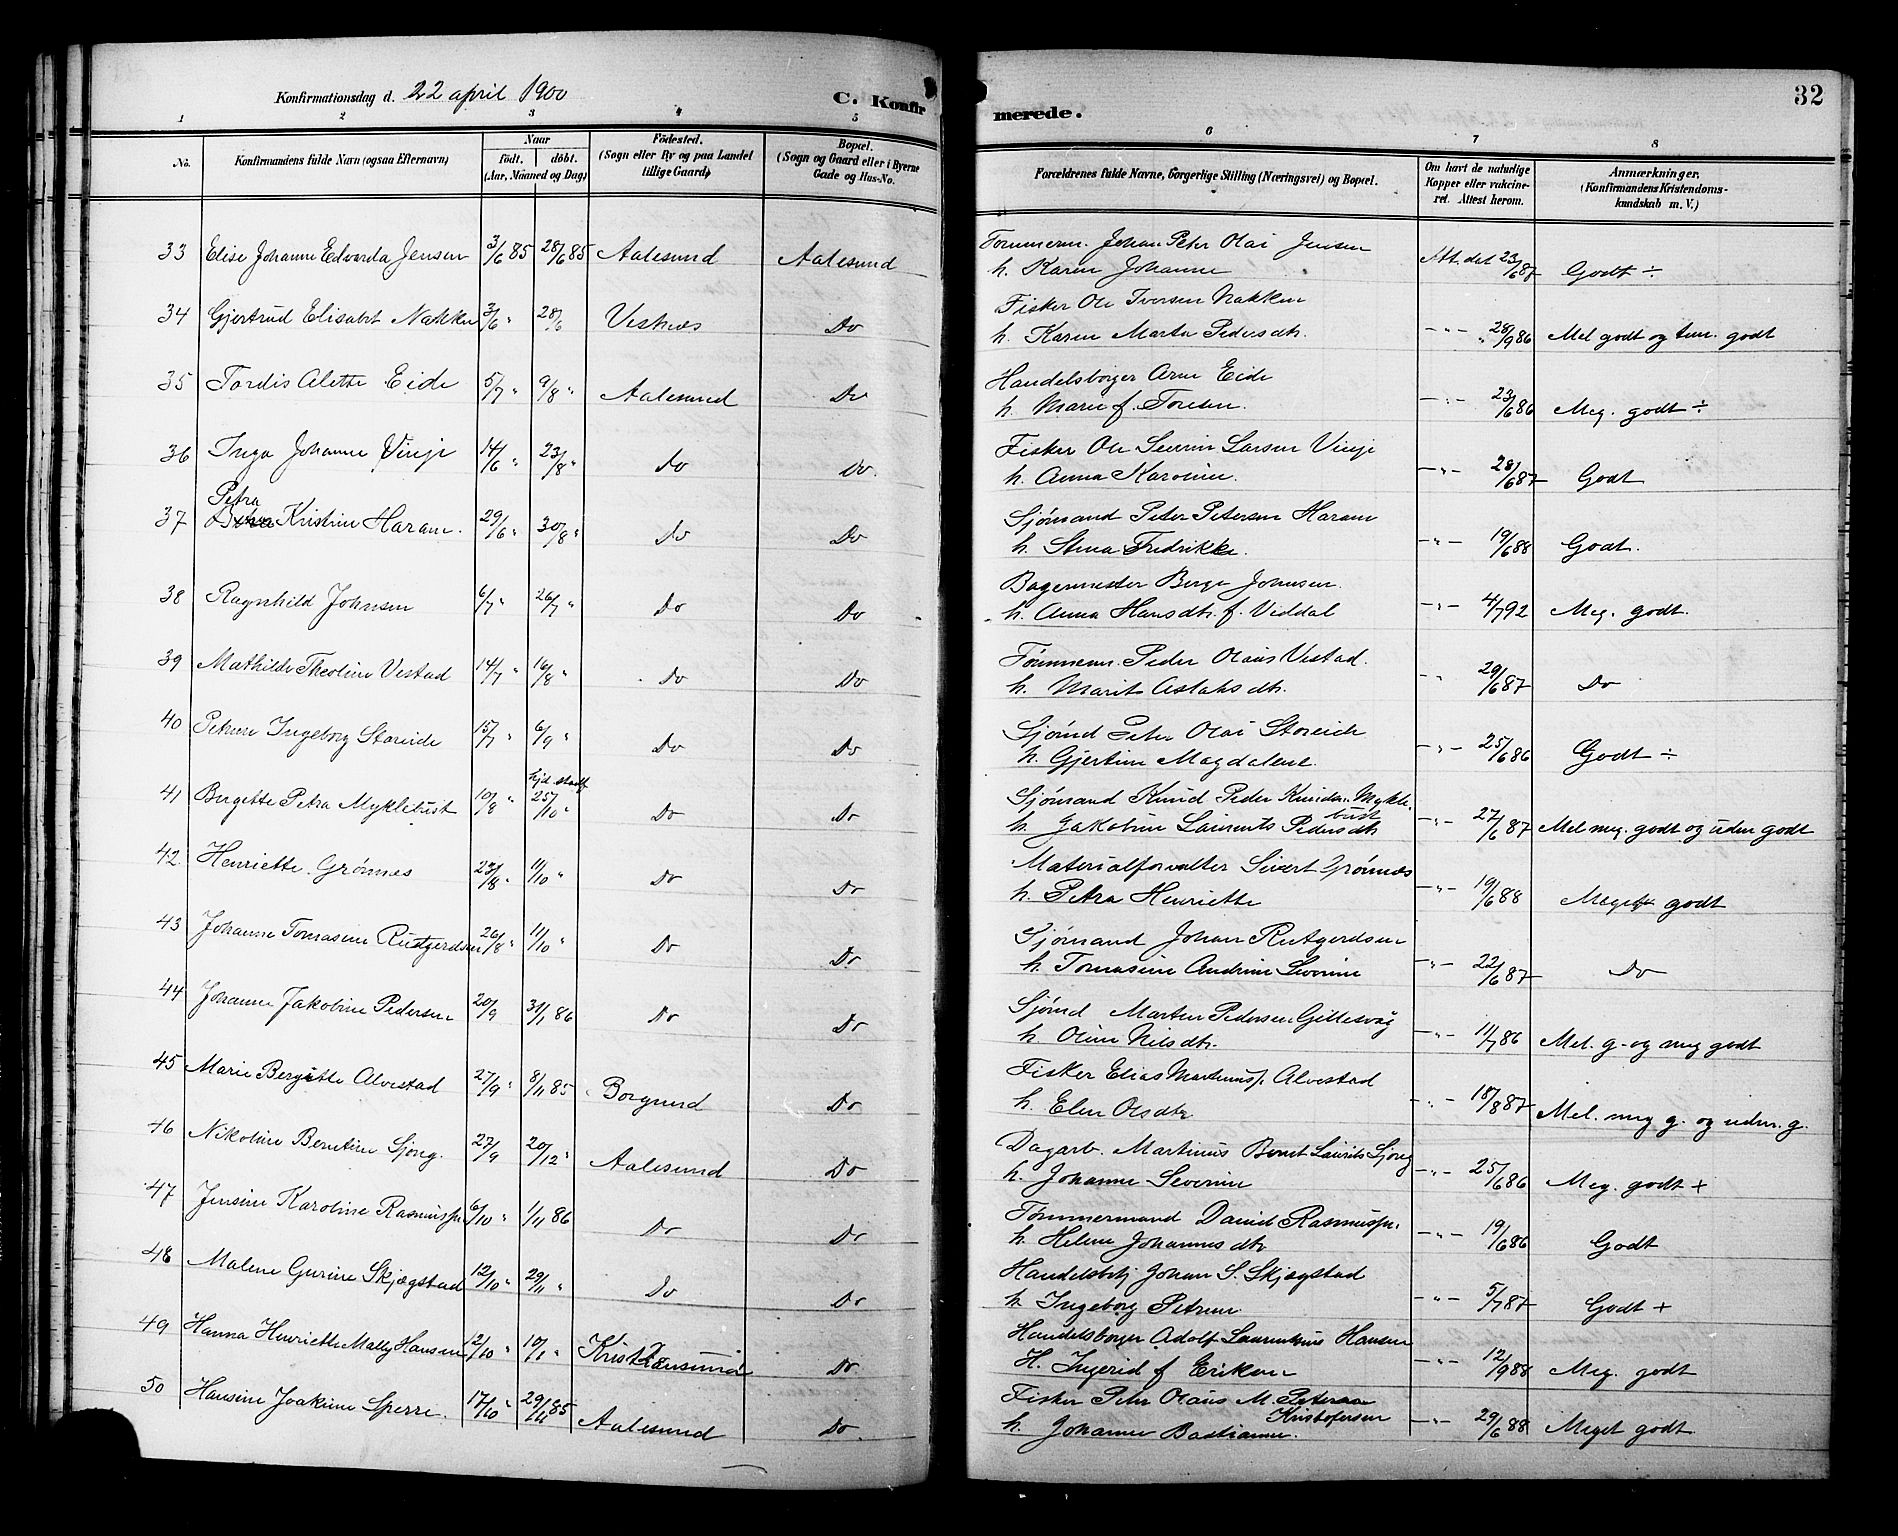 Konfirmationsdag d. 22 april 1900
C. Konfir
merede.
32
1 2 3 4 5 6 7 8
No. Konfirmandens fulde Navn (ogsaa Efternavn)
Naar
födt. döbt.
(Aar, Maaned og Dag)
Födested.
(Sogn eller By og paa Landet
tillige Gaard)
Bopæl.
(Sogn og Gaard eller i Byerne
Gade og Hus-No.
Forældrenes fulde Navne, borgerlige Stilling (Næringsvei) og Bopæl.
Om havt de naturlige
Kopper eller vakcine-
ret. Attest herom.
Anmærkninger,
(Konfirmandens Kristendoms-
kundskab m. V.)
33 Elise Johanne Edvarda Jensen 3/6 85 28/6 85 Aalesund Aalesund Tømmerm. Johan Peter Olai Jensen
h. Karen Johanne Att. dat 23/6 87 Godt ÷
34 Gjertrud Elisabet Nakken 3/6 " 28/6 Vestnes Do Fisker Ole Iversen Nakken
h. Karen Marta Pedersdtr. -"- 28/9 86 Mel godt og tem. godt
35 Tordis Alette Eide 5/7 " 9/8 " Aalesund Do Handelsborger Arne Eide
h. Marie f. Toresen. -"- 23/6 86 Meg. godt ÷
36 Inga Johanne Vinje 14/6 " 23/8 " Do Do. Fisker Ole Severin Larsen Vinje
h. Anna Karoline. -"- 28/6 87 Godt
Petra
37 Kristine Haram. 29/6 " 30/8 " Do Do Sjømand Peter Petersen Haram
h. Stina Fredrikke. -"- 19/6 88 Godt.
38 Ragnhild Johnsen 6/7 " 26/7 " Do Do Bagermester Berge Johnsen.
h. Anna Hansdtr. f. Veddal -"- 4/7 92 Meg. godt.
39 Mathilde Theoline Vestad 14/7 " 16/8 " Do Do Tømmerm. Peder Olaus Vestad.
h. Marit Aslaksdtr. -"- 29/6 87 Do
40 Petrine Ingeborg Storeide 15/7 " 6/9 " Do Do Sjømd Peter Olai Storeide
h. Gjertine Magdalene. -"- 25/6 86 Godt ÷
hjd. stadf
41 Birgette Petra Myklebust 10/8 " 25/10 " Do Do Sjømand Knud Peder Knudsen Mykle-
bust
h. Jakobine Laurents Pedersdtr -"- 27/6 87 Mel meg. godt og uden godt
42 Henriette Grønnes 23/8 " 11/10 " Do Do Materialforvalter Sivert Grønnes
h. Petra Henriette -"- 19/6 88 Meget godt
43 Johanne Tomasine Rutgerdsen 26/8 " 11/10 " Do Do Sjømand Johan Rutgerdsen
h. Tomasine Andrine Severine -"- 22/6 87 Do
44 Johanne Jakobine Pedersen 20/9 31/1 86 Do Do Sjømd Martin Pedersen Gillesvåg
h. Oline Nilsdtr. -"- 11/7 86 Mel. g. og meg godt
45 Marie Bergitte Alvestad 27/9 " 8/11 85 Borgund Do Fisker Elias Martinus. Alvestad
h. Elen Olsdtr -"- 18/8 87 Mel. meg g. og uden. g.
46 Nikoline Berntine Sjong. 27/9 20/12 " Aalesund Do Dagarb. Martinus Bernt Laurits Sjong
h. Johanne Severine -"- 25/6 86 Meg. godt +
47 Jensine Karoline Rasmussen 6/10 " 1/11 86 Do Do Tømmermand David Rasmussen.
h. Helene Johannesdtr -"- 19/6 86 Godt
48 Malene Gurine Skjægstad 12/10 " 29/11 " Do Do Handelsbetj Johan S. Skjægstad
h. Ingeborg Petrine. -"- 5/7 87 Godt +
49 Hanna Henriette Mally Hansen 12/10 " 10/1 " Kristiansund Do. Handelsborger Adolf Laurentius Hansen
H. Ingerid f Eriksen -"- 12/9 88 Meg. godt
50 Hansine Joakime Sperre. 17/10 " 29/11 85 Aalesund Do. Fisker Peter Olaus M. Peteraa
Kristofersen
h. Johanne Bastianne. -"- 29/6 88 Meget godt